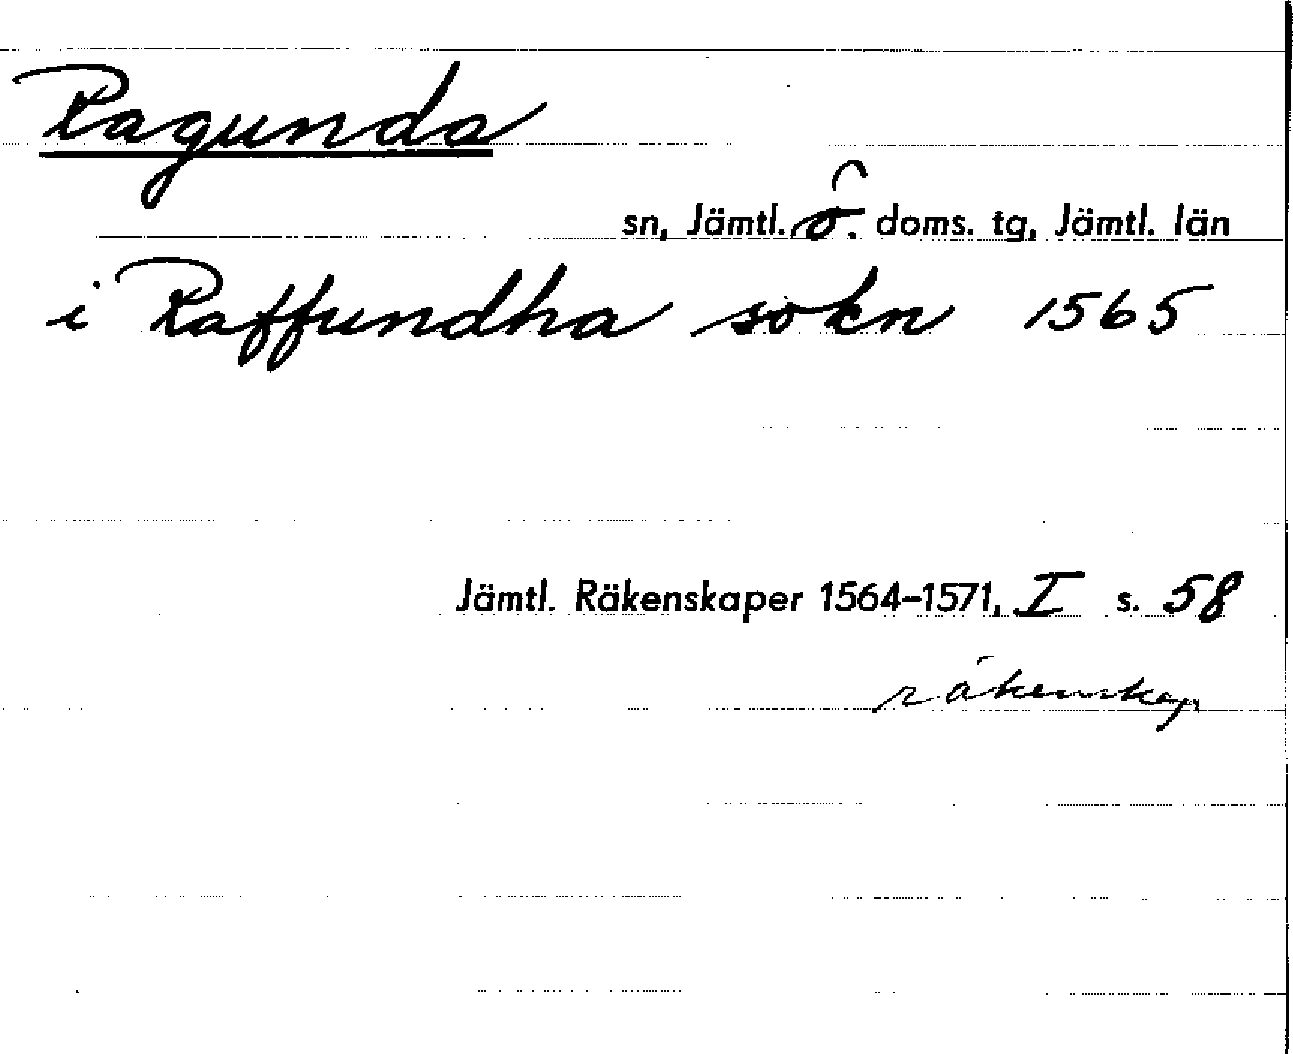 Ragunda
sn, Jämtl. ö. doms. tg, Jämtl. län
i Raffundha sokn 1565
Jämtl. Räkenskaper 1564-1571, I s. 58
räkenskap